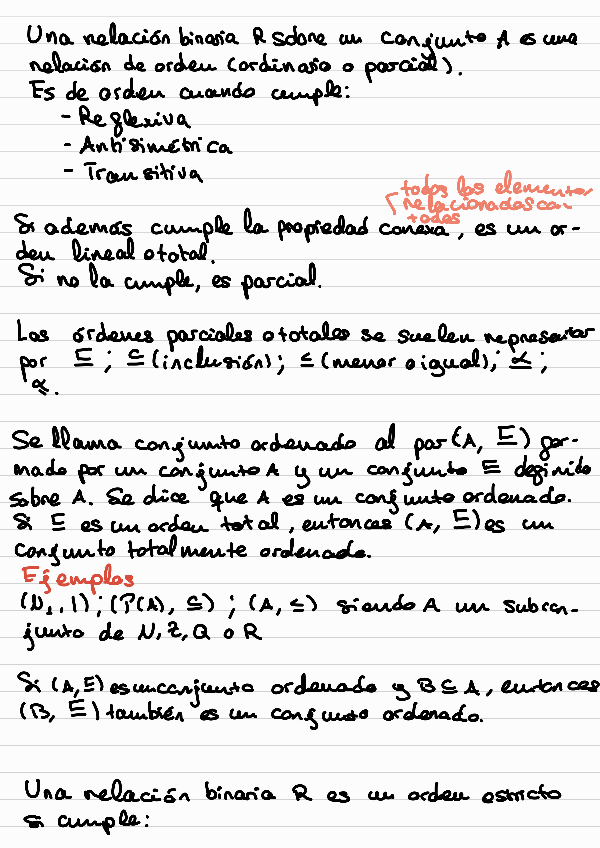 Una relación binaria R sobre un conjunto A es una
relación de orden (ordinario o parcial).
Es de orden cuando cumple:
- Reflexiva
- Antisimétrica
- Transitiva
todos los elementos
relacionados con
todos
Si además cumple la propiedad conexa, es un or-
den lineal o total.
Si no la cumple, es parcial.
Los órdenes parciales o totales se suelen representar
por ⊑ ; ⊆ (inclusión); ≤ (menor o igual); ⪯ ;
∝.
Se llama conjunto ordenado al par (A, ⊑) for-
mado por un conjunto A y un conjunto ⊑ definido
sobre A. Se dice que A es un conjunto ordenado.
Si ⊑ es un orden total, entonces (A, ⊑) es un
conjunto totalmente ordenado.
Ejemplos
(N₁, |) ; (P(A), ⊆) ; (A, ≤) siendo A un subcon-
junto de N, Z, Q o R
Si (A, ⊑) es un conjunto ordenado y B ⊆ A, entonces
(B, ⊑) también es un conjunto ordenado.
Una relación binaria R es un orden estricto
si cumple: